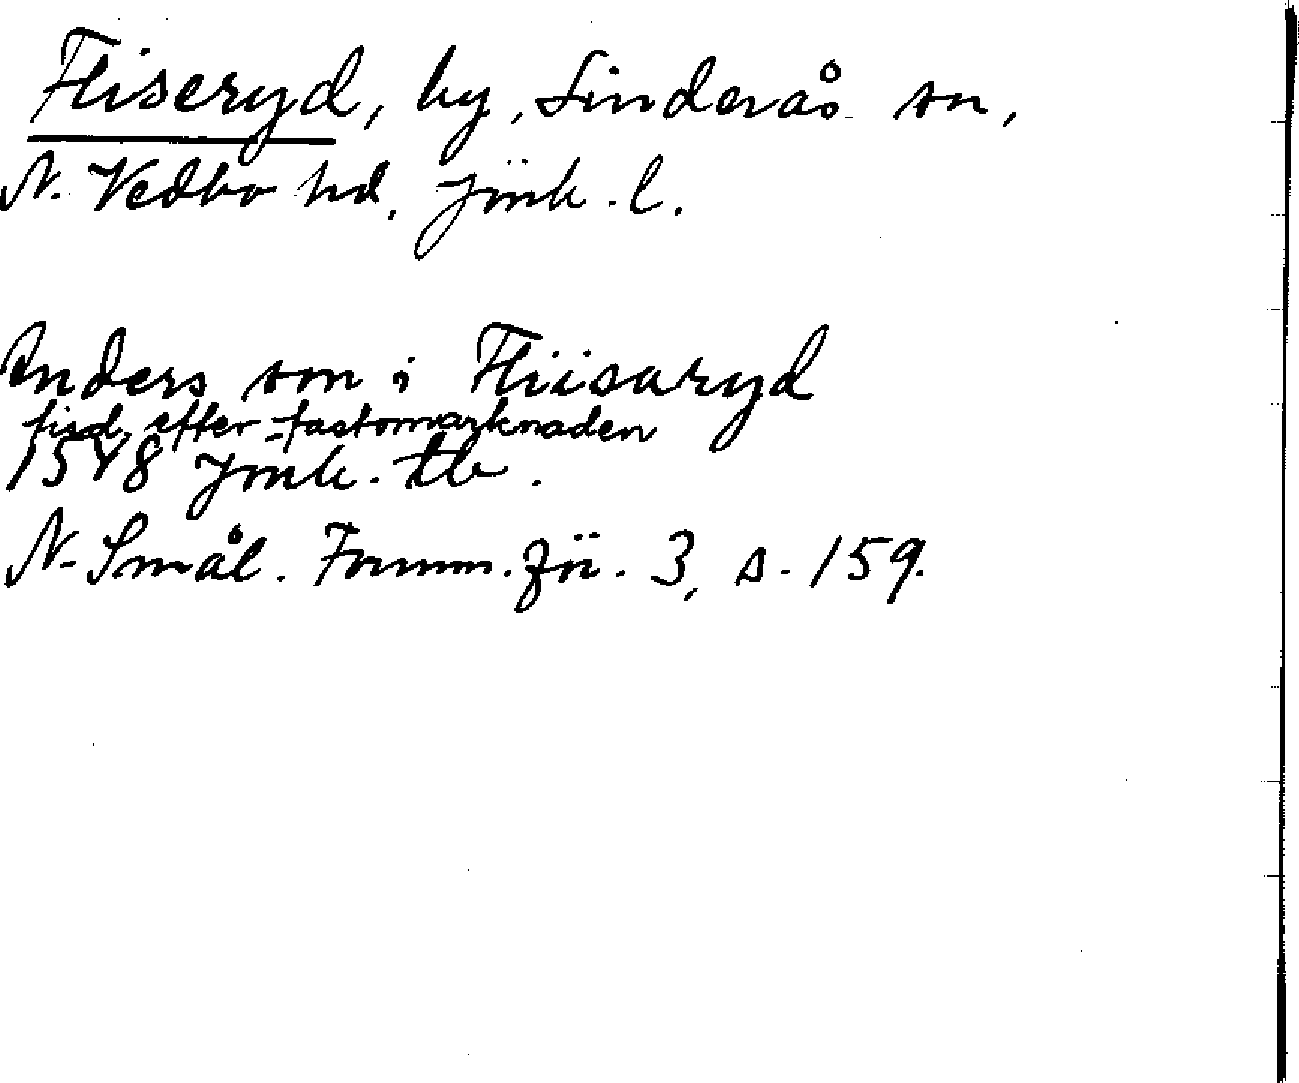 Fliseryd, by, Linderås sn,
N. Vedbo hd. Jönk. l.
Anders son i Fliisaryd
tisd. efter fastomarknaden
1548 Jönk. tb.
N. Smål. Fornm. för. 3, s. 159.